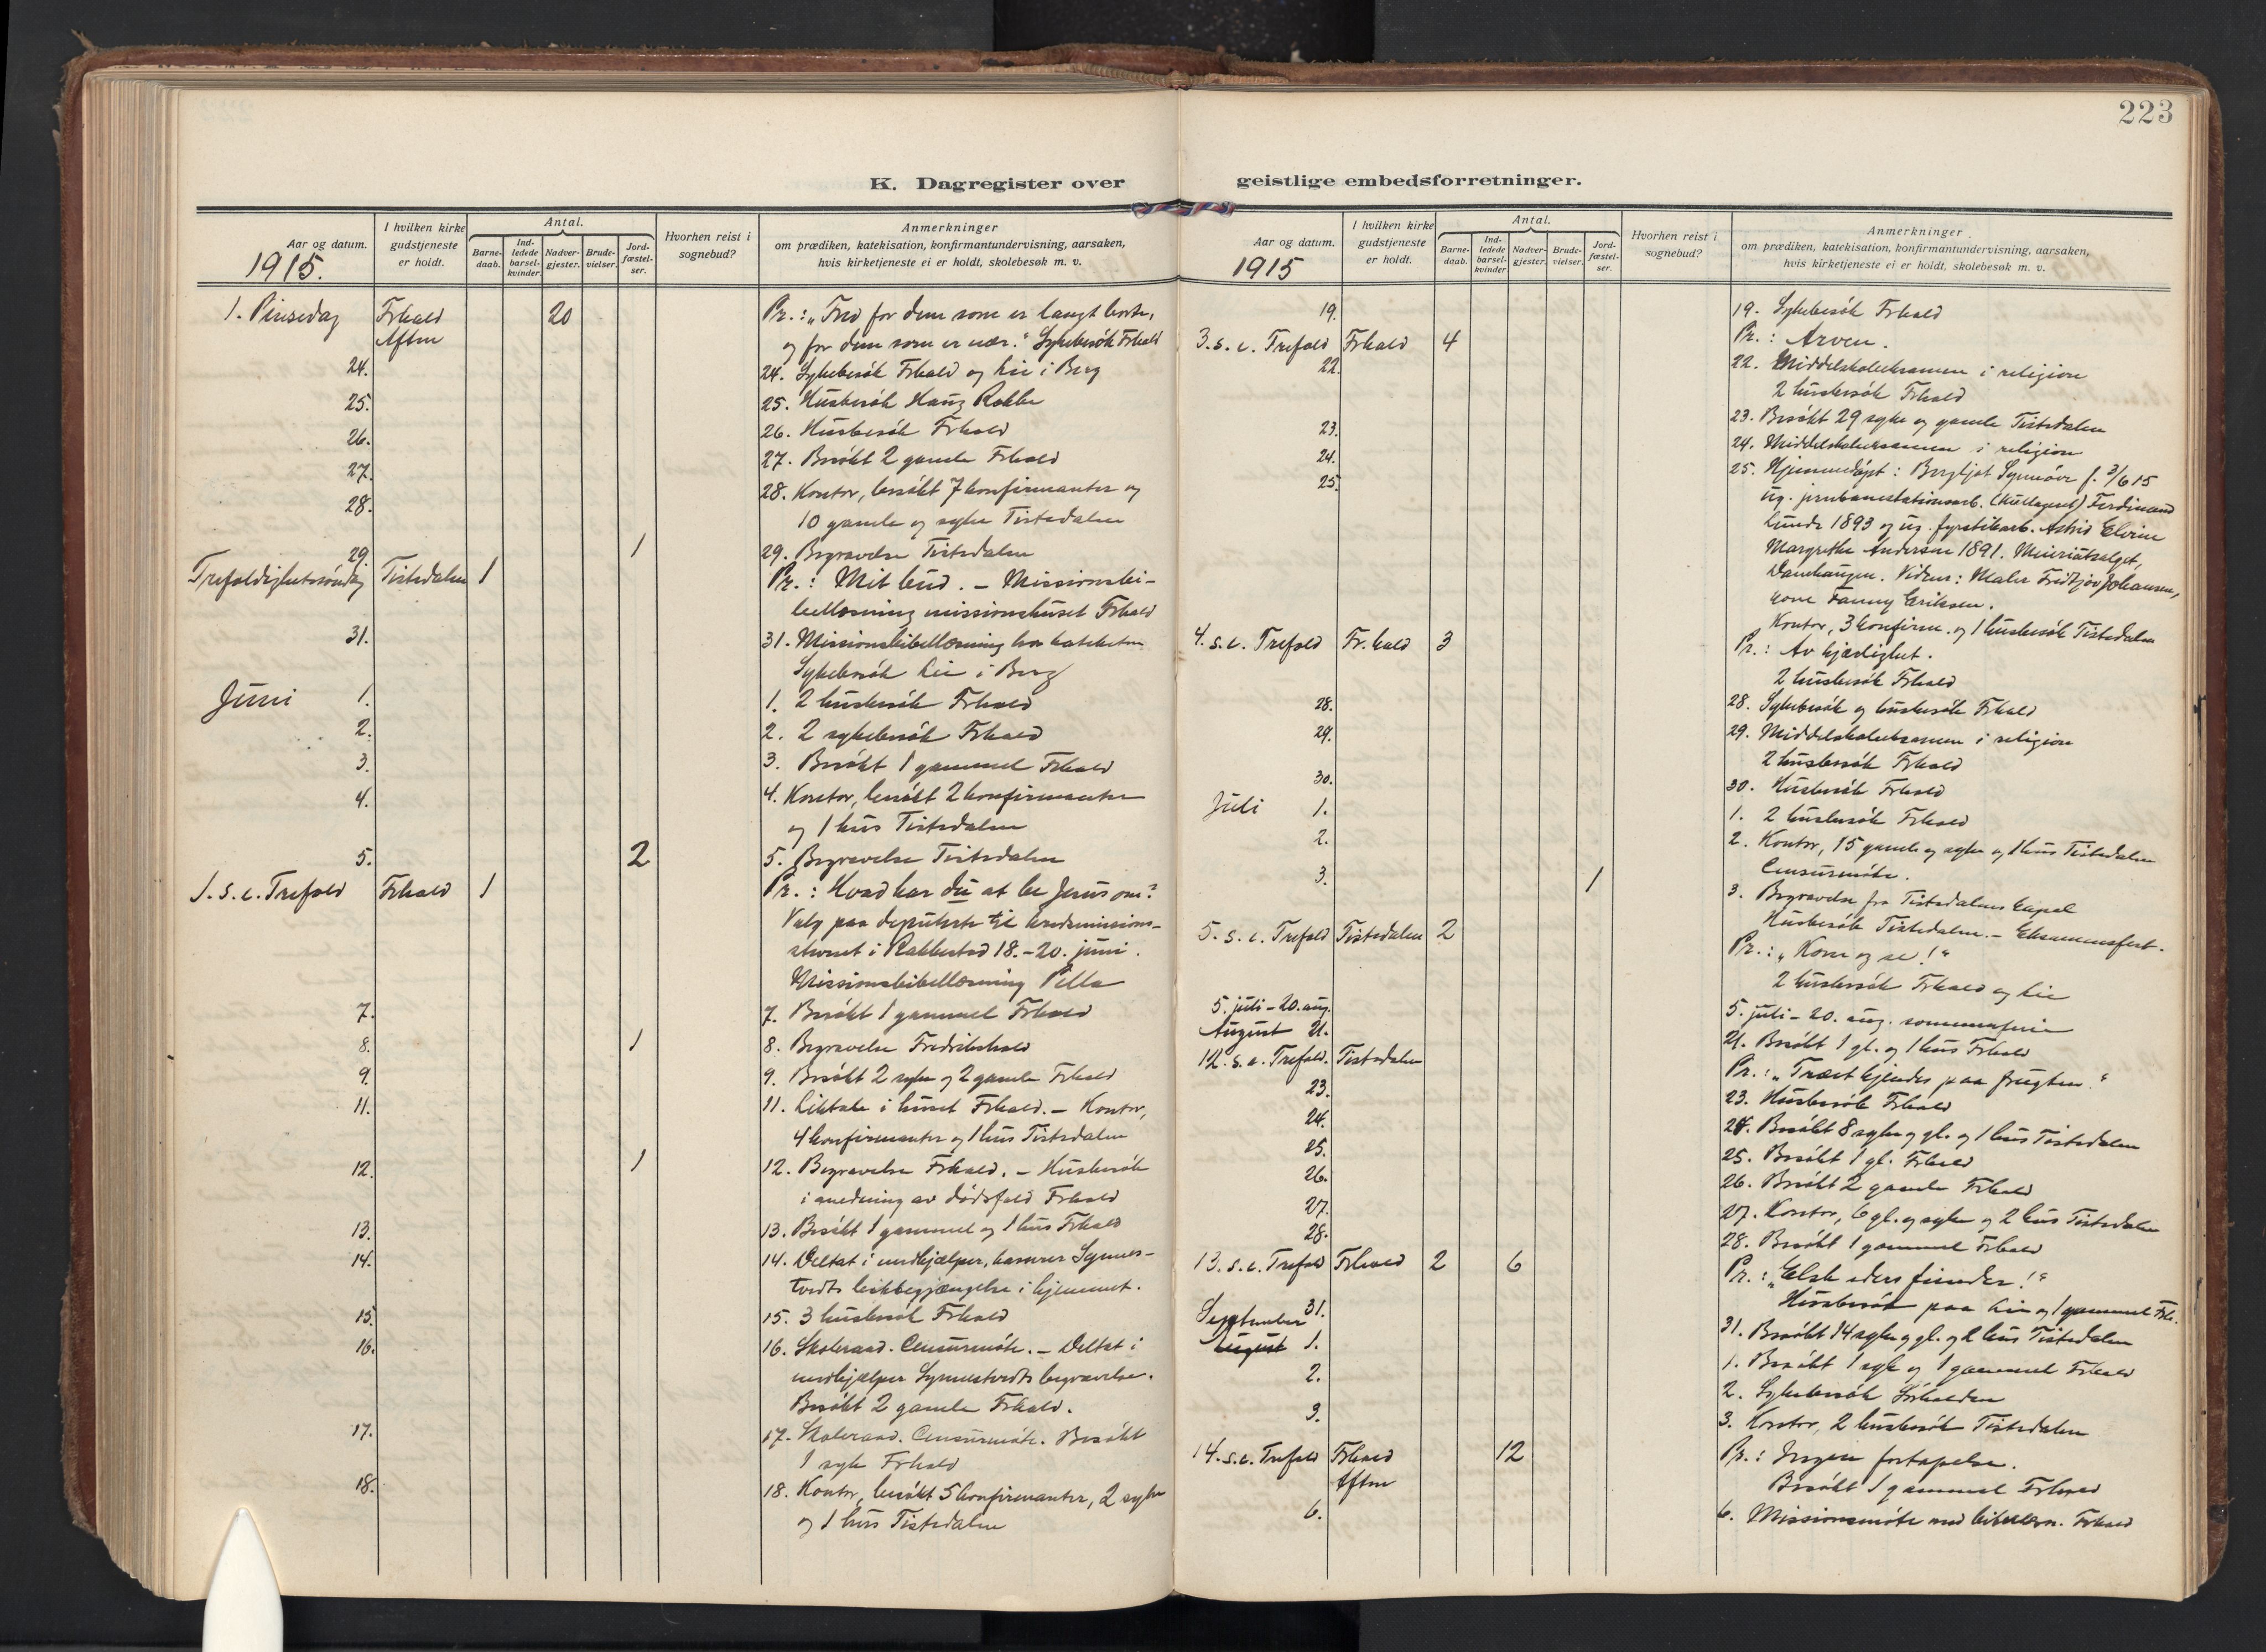 223
K. Dagregister over
Aar og datum.
1915.
I hvilken kirke gudstjeneste er holdt.
Antal.
Barnedaab.
Indledede barselkvinder.
Nadvergjester.
Brudevielser.
Jordfæstelser.
Hvorhen reist i sognebud?
Anmerkninger
om prædiken, katekisation, konfirmantundervisning, aarsaken,
hvis kirketjeneste ei er holdt, skolebesøk m. v.
1. Pinsedag Frhald 20 Pr.: "Fred for dem som er langt borte,
Aften og for dem som er nær." Sykebesök Frhald
24. 24. Sykebesök Frhald og her i Berg
25. 25. Husbesök Rokke
26. 26. Husbesök Frhald
27. 27. Besökt 2 gamle Frhald
28. 28. Kontor, besökt 7 konfirmanter og
10 gamle og syke Tistedalen
29. 1 29. Begravelse Tistedalen
Trefoldighetssöndag Tistedalen 1 Pr.: Mit bud. – Missionsbi-
bellæsning missionshuset Frhald
31. 31. Missionsbibellæsning hos kateketen
Sykebesök her i Berg
Juni 1. 1. 2 husbesök Frhald
2. 2. 2 sykebesök Frhald
3. 3. Besökt 1 gammel Frhald
4. 4. Kontor, besökt 2 konfirmanter
og 1 hus Tistedalen
5. 2 5. Begravelse Tistedalen
1. s. e. Trefold Frhald 1 Pr.: Hvad har du at be Jesus om?
Valg paa deputerte til kredsmissions-
stevnet i Rakkestad 18.–20. juni.
Missionsbibellæsning Pella
7. 7. Besökt 1 gammel Frhald
8. 1 8. Begravelse Fredrikshald
9. 9. Besökt 2 syke og 2 gamle Frhald
11. 11. Liktale i huset Frhald. – Kontor,
4 konfirmanter og 1 hus Tistedalen
12. 1 12. Begravelse Frhald. – Husbesök
i anledning av dödsfald Frhald
13. 13. Besökt 1 gammel og 1 hus Frhald
14. 14. Deltat i medhjælper, kasserer Synnes-
tvedts likbegjængelse i hjemmet.
15. 15. 3 husbesök Frhald
16. 16. Skoleraad. Censurmöte. – Deltat i
medhjælper Synnestvedts begravelse.
Besökt 2 gamle Frhald.
17. 17. Skoleraad. Censurmöte. Besökt
1 syk Frhald
18. 18. Kontor, besökt 5 konfirmanter, 2 syke
og 1 hus Tistedalen
geistlige embedsforretninger.
Aar og datum.
1915
I hvilken kirke gudstjeneste er holdt.
Antal.
Barnedaab.
Indledede barselkvinder.
Nadvergjester.
Brudevielser.
Jordfæstelser.
Hvorhen reist i sognebud?
Anmerkninger
om prædiken, katekisation, konfirmantundervisning, aarsaken,
hvis kirketjeneste ei er holdt, skolebesøk m. v.
19. 19. Sykebesök Frhald
3. s. e. Trefold Frhald 4 Pr.: Arven.
22. 22. Middelskoleeksamen i religion
2 husbesök Frhald
23. 23. Besökt 29 syke og gamle Tistedalen
24. 24. Middelskoleeksamen i religion
25. 25. Hjemmedöpt: Bergljot Synnöve f. 3/6 15
ug. jernbanestationsarb. Ferdinand
Lunde 1893 og ug. fyrstikarb. Astrid Elvine
Margrethe Andersen 1891. Meieriutsalget,
Damhaugen. Vidner: Maler Fridtjov Johansen,
kone Fanny Eriksen.
Kontor, 3 konfirm. og 1 husbesök Tistedalen
4. s. e. Trefold Fr.hald 3 Pr.: Av kjærlighet.
2 husbesök Frhald
28. 28. Sykebesök og husbesök Frhald
29. 29. Middelskoleeksamen i religion
2 husbesök Frhald
30. 30. Husbesök Frhald
Juli 1. 1. 2 husbesök Frhald
2. 2. Kontor, 15 gamle og syke og 1 hus Tistedalen
Censurmöte.
3. 1 3. Begravelse fra Tistedalens kapel
Husbesök Tistedalen. – Eksamensfest.
5. s. e. Trefold Tistedalen 2 Pr.: "Kom og se!"
2 husbesök Frhald og her
5. juli – 20. aug. 5. juli – 20. aug. sommerferie
August 21. 21. Besökt 1 gl. og 1 hus Frhald
12. s. e. Trefold. Tistedalen Pr.: "Træet kjendes paa frugten."
23. 23. Husbesök Frhald
24. 24. Besökt 8 syke og gl. og 1 hus Tistedalen
25. 25. Besökt 1 gl. Frhald
26. 26. Besökt 2 gamle Frhald
27. 27. Kontor, 6 gl. og syke og 2 hus Tistedalen
28. 28. Besökt 1 gammel Frhald
13. s. e. Trefold Frhald 2 6 Pr.: "Elsk eders fiender!"
Husbesök paa her og 1 gammel Frh.
31. 31. Besökt 14 syke og gl. og 2 hus Tistedalen
September
August 1. 1. Besökt 1 syk og 1 gammel Frhald
2. 2. Sykebesök
3. 3. Kontor, 2 husbesök Tistedalen
14. s. e. Trefold Frhald 12 Pr.: Ingen fortapelse.
Aften Besökt 1 gammel Frhald
6. 6. Missionsmöte med bibellæsn. Frhald